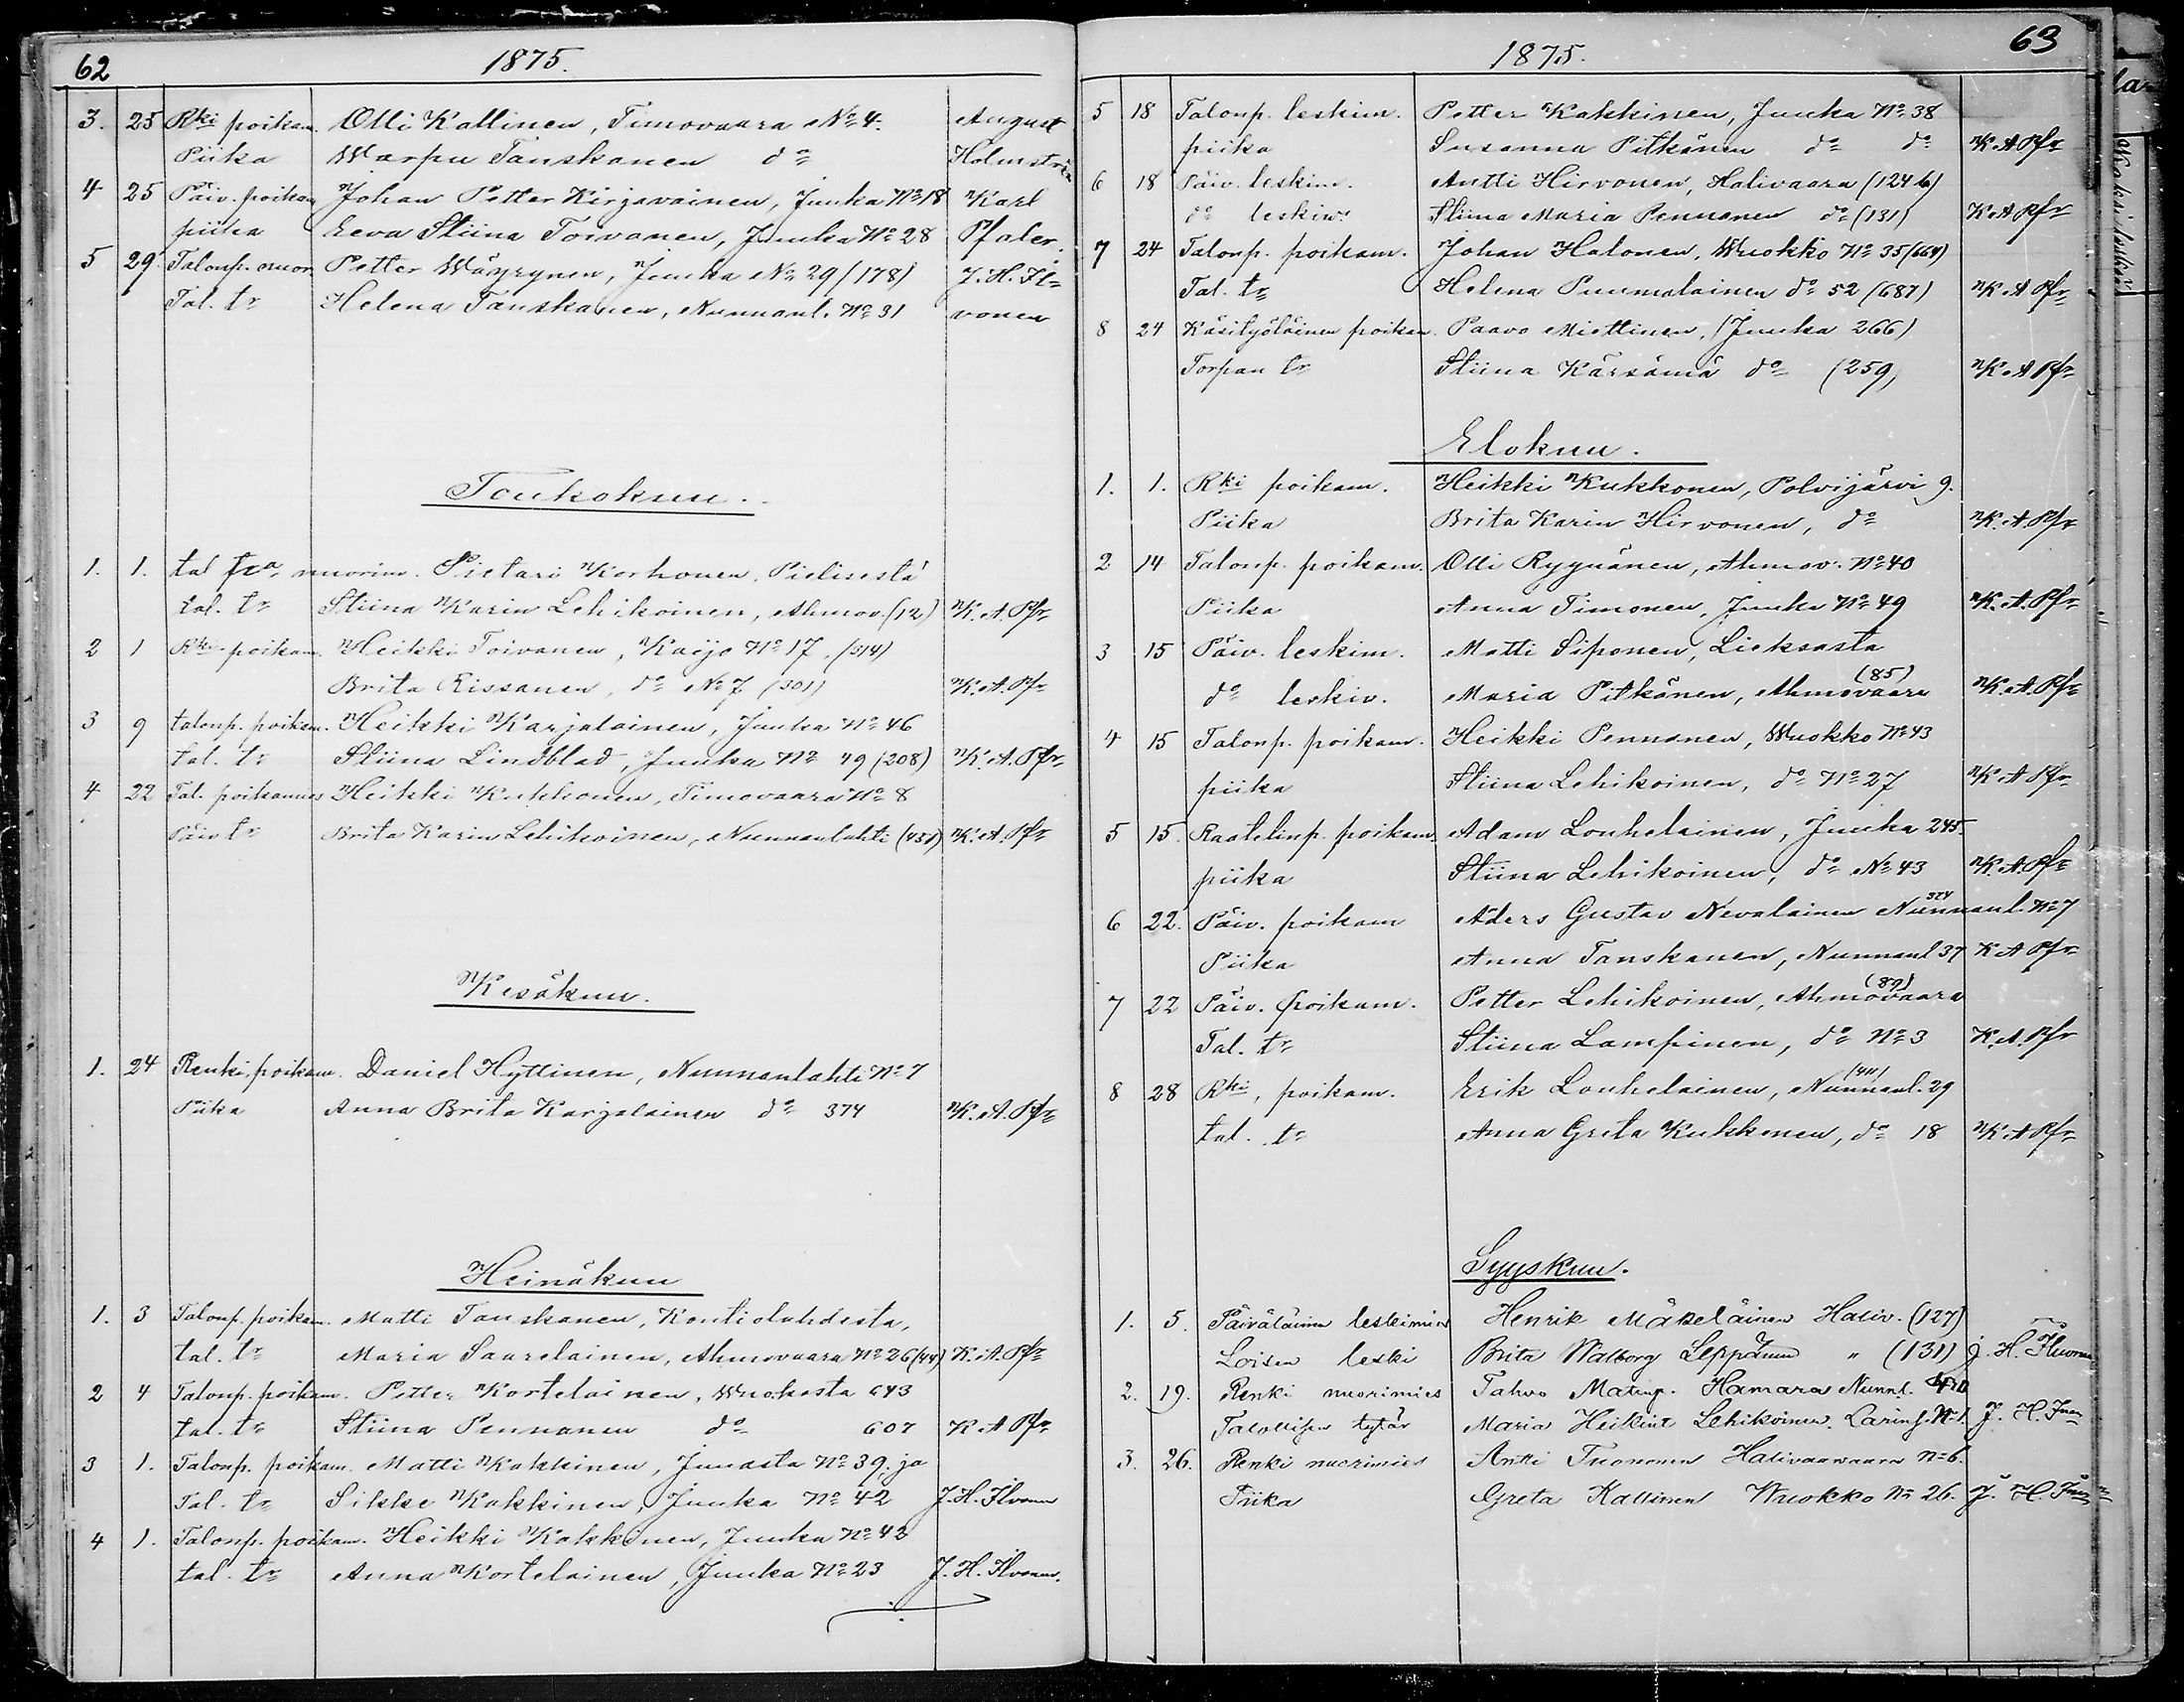 62
1875.
3. 25 Rki poikam. Olli Kallinen, Timovaara No 4. August
Piika Warpu Tanskanen do Holmström
4 25 Päiv. poikam Johan Petter Kirjavainen, Juuka No 18 Karl
piika Eeva Stiina Toivanen, Juuka No 28 Pfaler.
5 29. Talonp. nuor. Petter Wäyrynen, Juuka No 29 (178) J. H. Il-
Tal. tr Helena Tanskanen, Nunnanl. No 31 vonen
Toukokuu.
1. 1. tal nuorim. Pietari Korhonen, Pielisestä
tal. tr Stiina Karin Lehikoinen, Ahmov. (12) K. A. Pfr
2 1 Rki poikam. Heikki Toivanen, Kaijo No 17, (514)
Brita Rissanen, do No 7 (301) K. A. Pfr
3 9 talonp. poikam. Heikki Karjalainen, Juuka No 46
tal. tr Stiina Lindblad, Juuka No 49 (208) K. A. Pfr
4 22 Tal. poikamies Heikki Kukkonen, Timovaara No 8
Päiv tr Brita Karin Lehikoinen, Nunnanlahti K. A. Pfr
Kesäkuu.
1. 24 Renki, poikam. Daniel Hyttinen, Nunnanlahti No 7
Piika Anna Brita Karjalainen do 374 K. A. Pfr
Heinäkuu
1. 3 Talonp. poikam. Matti Tanskanen, Kontiolahdesta,
tal. tr Maria Saarelainen, Ahmovaara No 26 (44) K. A. Pfr
2 4 Talonp. poikam. Petter Kortelainen, Wuokosta 643
tal. tr Stiina Pennanen do 607 K A Pfr
3 1. Talonp. poikam. Matti Kakkinen, Juuasta No 39, ja
Tal. tr Sikke Kakkinen, Juuka No 42 J. H. Ilvonen
4 1. Talonp. poikam. Heikki Kakkinen, Juuka No 42
tal. tr Anna Kortelainen, Juuka No 23 J. H. Ilvonen.
63
1875.
5 18 Talonp. leskim. Petter Kakkinen, Juuka No 38
piika Susanna Pitkänen do do K A Pfr
6 18 Päiv. leskim. Antti Hirvonen, Halivaara (124 b)
do leskiv. Stiina Maria Pennanen do (131) K A Pfr
7 24 Talonp. poikam. Johan Halonen, Wuokko No 35 (664)
Tal. tr Helena Puumalainen do 52 (687) K A Pfr
8 24 Käsityöläinen poikam. Paavo Miettinen, (Juuka 266)
Torpan tr Stiina Kärsämä do (259) K A Pfr
Elokuu.
1. 1. Rki poikam. Heikki Kukkonen, Polvijärvi 9.
Piika Brita Karin Hirvonen, do K. A. Pfr
2 14 Talonp. poikam. Olli Ryynänen, Ahmov. No 40
Piika Anna Timonen, Juuka No 49 K. A. Pfr
3 15 Päiv. leskim. Matti Siponen, Lieksasta
do leskiv. Maria Pitkänen, Ahmovaara (85) K. A. Pfr
4 15 Talonp. poikam. Heikki Pennanen, Wuokko No 43
piika Stiina Lehikoinen, do No 27 K A Pfr
5 15. Raatelinp. poikam. Adam Louhelainen, Juuka 245.
piika Stiina Lehikoinen, do No 43 K. A. Pfr
6 22. Päiv. poikam Aders Gustav Nevalainen Nunnanl. No 7 374
Piika Anna Tanskanen, Nunnanl 37 K A Pfr
7 22 Päiv. poikam. Petter Lehikoinen, Ahmovaara (89)
Tal. tr Stiina Lampinen, do No 3 K. A. Pfr
8 28 Rki, poikam. Erik Louhelainen, Nunnanl. 29
tal. tr Anna Greta Kukkonen, do 18 K A Pfr
Syyskuu.
1. 5. Päiväläinen leskimies Henrik Mäkeläinen Haliv. (127)
Loisen leski Brita Walborg Leppänen " (131) J. H. Ilvonen
2. 19. Renki nuorimies Tahvo Matinp. Hamara Nunnl.
Talollisen tytär Maria Heikint. Lehikoinen. No 1. J. H.
3. 26. Renki nuorimies Antti Tuononen Halivaarvaara No 6.
Piika Greta Kallinen Wuokko No 26. J. H.